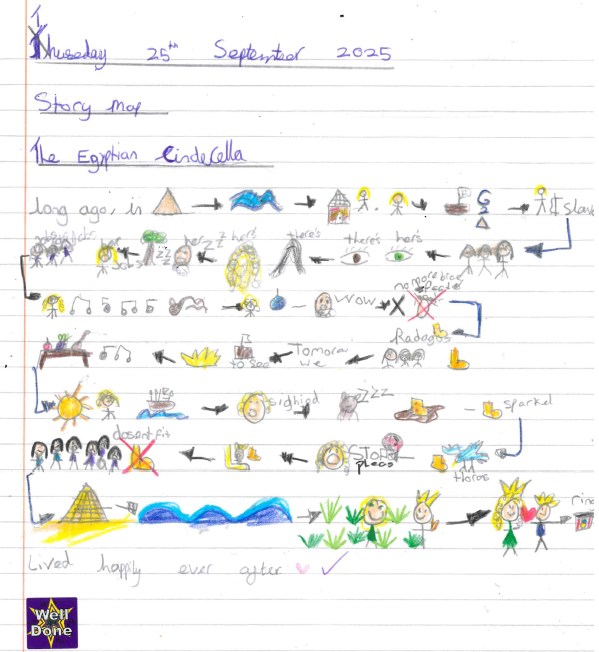 Thuseday 25th September 2025
Story map
The Egyptian Cinderella
long ago, in £ slave
her jobs her zz hers there's there's hers
zz
wow no more brea
Radagos
to see Tomorow we
sighied zzz sparkel
dosent fit STOP pleas Horos
Lived happily ever after
Well Done